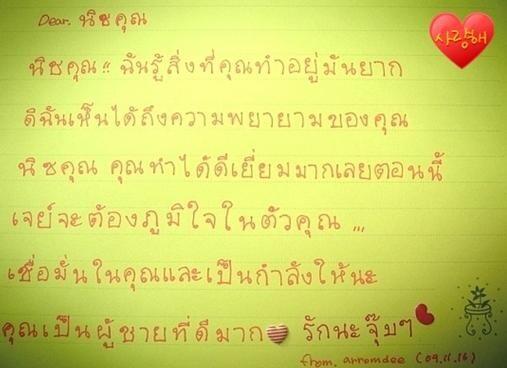 Dear. นิชคุณ
사랑해
นิชคุณ!! ฉันรู้สิ่งที่คุณทำอยู่มันยาก
ดิฉันเห็นได้ถึงความพยายามของคุณ
นิชคุณ คุณทำได้ดีเยี่ยมมากเลยตอนนี้
เจย์จะต้องภูมิใจในตัวคุณ ...
เชื่อมั่นในคุณและเป็นกำลังให้นะ
คุณเป็นผู้ชายที่ดีมาก รักนะจุ๊บๆ
from. arromdee (09.11.16)